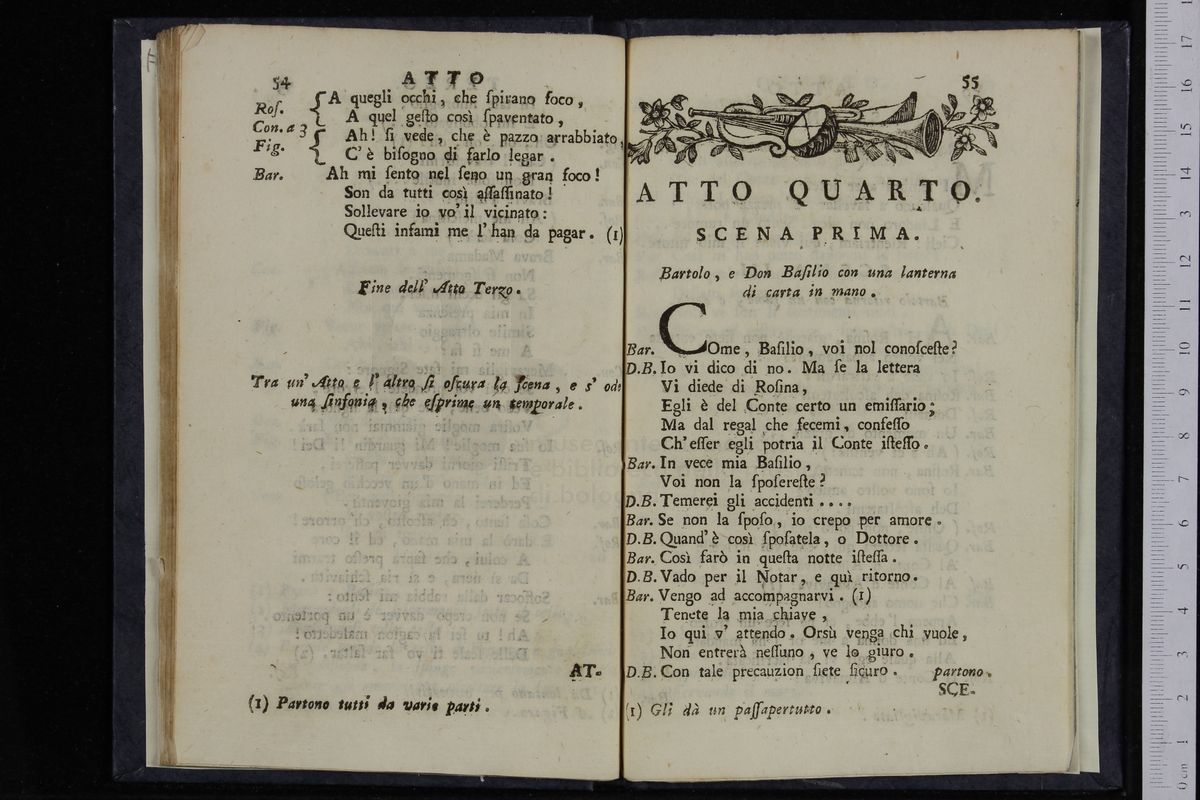 54
ATTO
A quegli occhi, che ſpirano foco,
Roſ.
A quel geſto così ſpaventato,
Con. a 3
Ah! ſi vede, che è pazzo arrabbiato,
Fig.
C' è biſogno di farlo legar.
Bar. Ah mi ſento nel ſeno un gran foco!
Son da tutti così aſſaſſinato!
Sollevare io vo' il vicinato:
Queſti infami me l' han da pagar. (1)
Fine dell' Atto Terzo.
Tra un' Atto e l' altro ſi oſcura la ſcena, e s' ode
una ſinfonia, che eſprime un temporale.
AT-
(1) Partono tutti da varie parti.
55
ATTO QUARTO.
SCENA PRIMA.
Bartolo, e Don Baſilio con una lanterna
di carta in mano.
Bar. COme, Baſilio, voi nol conoſceſte?
D.B. Io vi dico di no. Ma ſe la lettera
Vi diede di Roſina,
Egli è del Conte certo un emiſſario;
Ma dal regal che fecemi, confeſſo
Ch' eſſer egli potria il Conte iſteſſo.
Bar. In vece mia Baſilio,
Voi non la ſpoſereſte?
D.B. Temerei gli accidenti ....
Bar. Se non la ſpoſo, io crepo per amore.
D.B. Quand' è così ſpoſatela, o Dottore.
Bar. Così farò in queſta notte iſteſſa.
D.B. Vado per il Notar, e quì ritorno.
Bar. Vengo ad accompagnarvi. (1)
Tenete la mia chiave,
Io qui v' attendo. Orsù venga chi vuole,
Non entrerà neſſuno, ve lo giuro.
D.B. Con tale precauzion ſiete ſicuro. partono.
SCE-
(1) Gli dà un paſſapertutto.